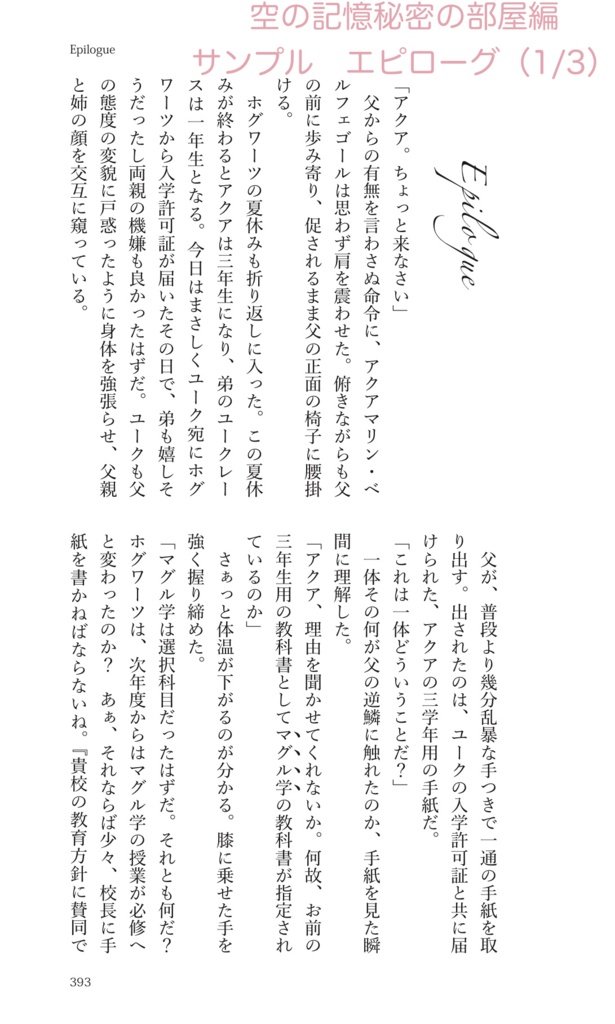 空の記憶秘密の部屋編
サンプル　エピローグ（1/3）
Epilogue
Epilogue
「アクア。ちょっと来なさい」
　父からの有無を言わさぬ命令に、アクアマリン・ベ
ルフェゴールは思わず肩を震わせた。俯きながらも父
の前に歩み寄り、促されるまま父の正面の椅子に腰掛
ける。
　ホグワーツの夏休みも折り返しに入った。この夏休
みが終わるとアクアは三年生になり、弟のユークレー
スは一年生となる。今日はまさしくユーク宛にホグ
ワーツから入学許可証が届いたその日で、弟も嬉しそ
うだったし両親の機嫌も良かったはずだ。ユークも父
の態度の変貌に戸惑ったように身体を強張らせ、父親
と姉の顔を交互に窺っている。
　父が、普段より幾分乱暴な手つきで一通の手紙を取
り出す。出されたのは、ユークの入学許可証と共に届
けられた、アクアの三学年用の手紙だ。
「これは一体どういうことだ？」
　一体その何が父の逆鱗に触れたのか、手紙を見た瞬
間に理解した。
「アクア、理由を聞かせてくれないか。何故、お前の
三年生用の教科書としてマグル学の教科書が指定され
ているのか」
　さぁっと体温が下がるのが分かる。膝に乗せた手を
強く握り締めた。
「マグル学は選択科目だったはずだ。それとも何だ？
ホグワーツは、次年度からはマグル学の授業が必修へ
と変わったのか？　あぁ、それならば少々、校長に手
紙を書かねばならないね。『貴校の教育方針に賛同で
393